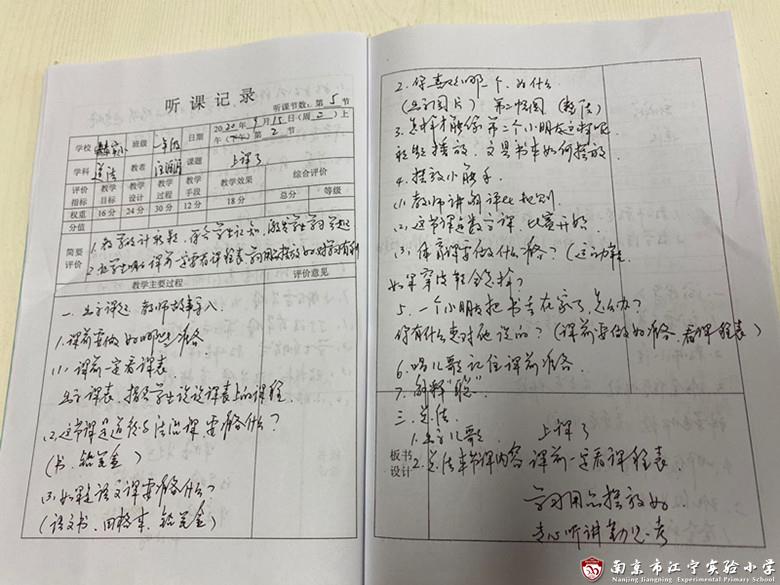 听课记录
听课节数：第 5 节
学校 班级 一年级 日期 2020年9月15日（周二）上午（下午）第 2 节
学科 道法 教者 课题 上课了
评价指标 教学目标 教学设计 教学过程 教学手段 教学效果 综合评价
总分 等级
权重 16分 24分 30分 12分 18分
分值
简要评价
1. 教学设计新颖，符合学生认知，激发学生学习兴趣
2. 让学生明白课前一定要看课程表 学习用品摆放好 对学习有利
教学主要过程 评价意见
一. 出示课题 教师故事导入
1. 课前要做好哪些准备
(1) 课前一定看课表
出示课表，指名学生说说课表上的课程
(2) 这节课是道德与法治课，要准备什么？
（书、铅笔盒）
(3) 如果是语文课要准备什么？
（语文书、田格本、铅笔盒）
2. 你喜欢哪一个，为什么
（出示图片） 第二幅图 （整洁）
3. 怎样才能像第二个小朋友这样呢
视频播放，文具书本如何摆放
4. 摆放小能手
(1) 教师讲解评比规则
(2) 这节课是数学课，比赛开始
(3) 体育课要做什么准备？（运动鞋
如果穿皮鞋会怎样？
5. 一个小朋友把书丢在家了，怎么办？
你有什么想对他说的？（课前要做好准备，看课程表）
6. 唱儿歌 记住课前准备
7. 解释“聪”
三. 总结
1. 出示儿歌
2. 总结本节课内容
板书设计
上课了
课前一定看课程表
学习用品摆放好
专心听讲勤思考
南京市江宁实验小学
Nanjing Jiangning Experimental Primary School